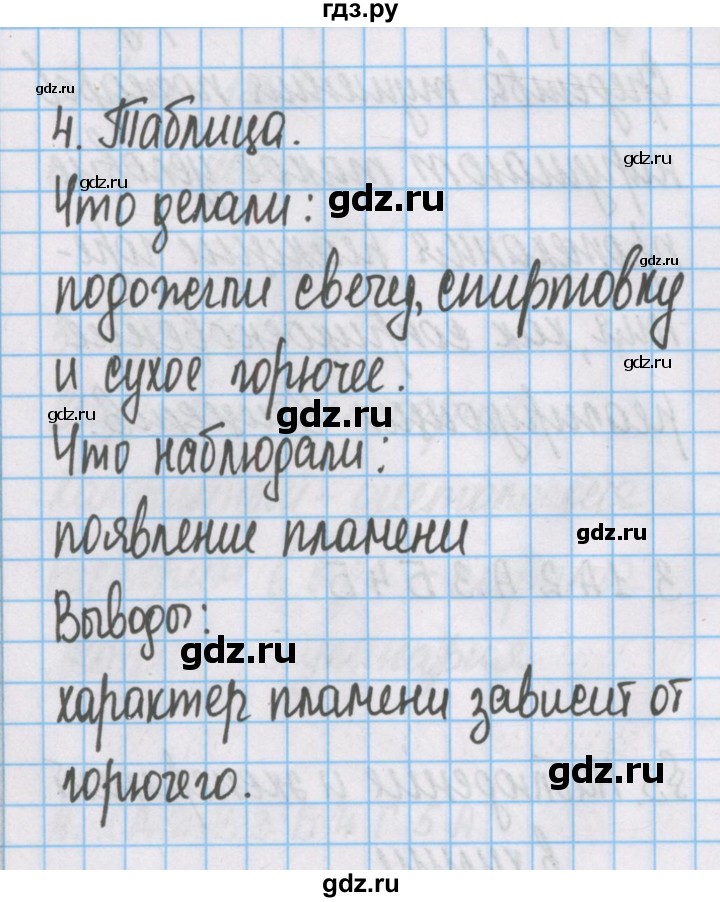 гдз.ру
gdz.ru
4. Таблица.
gdz.ru
gdz.ru
Что делали: gdz.ru
gdz.ru
подожгли свечу, спиртовку
gdz.ru
и сухое горючее.
gdz.ru
gdz.ru
Что наблюдали:
gdz.ru
появление пламени
Выводы:
gdz.ru
характер пламени зависит от
gdz.ru
горючего.
gdz.ru